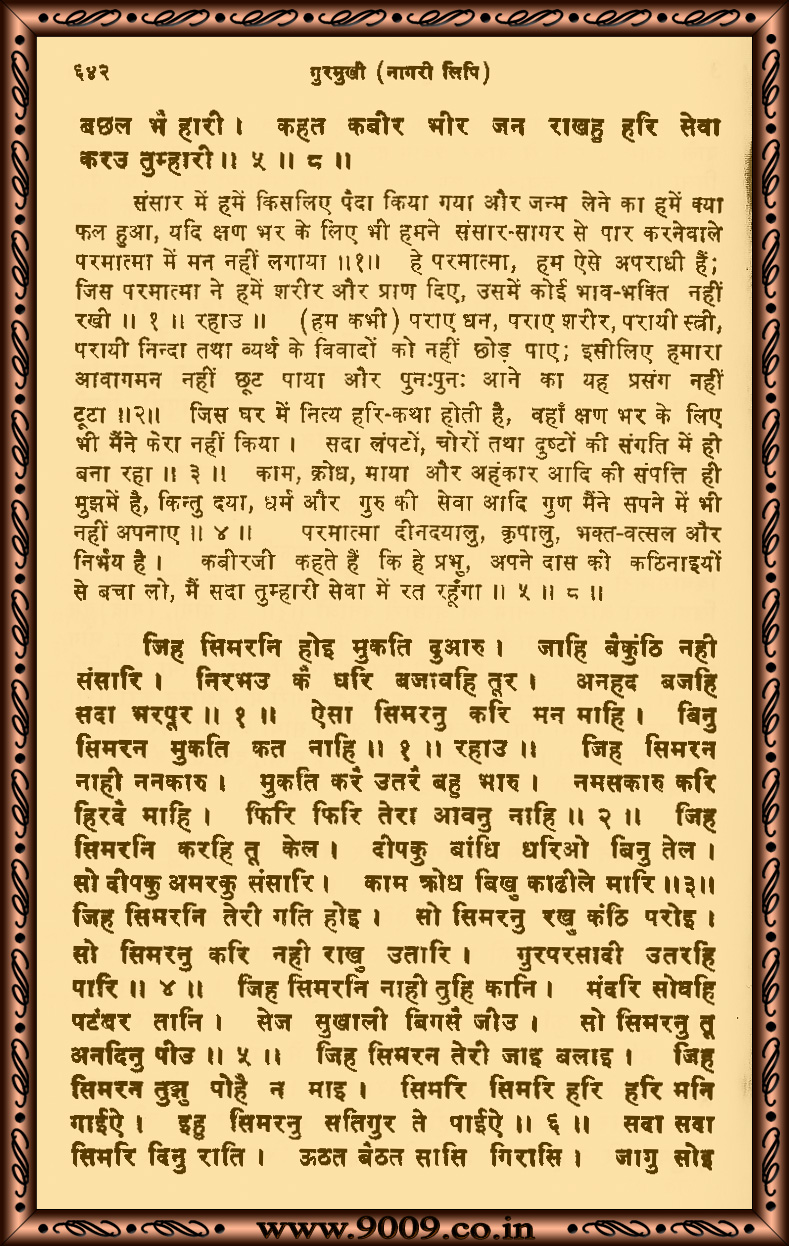 ६४२ गुरमुखी (नागरी लिपि)
बछल भै हारी। कहत कबीर भीर जन राखहु हरि सेवा
करउ तुम्हारी॥ ५ ॥ ८ ॥
संसार में हमें किसलिए पैदा किया गया और जन्म लेने का हमें क्या
फल हुआ, यदि क्षण भर के लिए भी हमने संसार-सागर से पार करनेवाले
परमात्मा में मन नहीं लगाया ॥१॥ हे परमात्मा, हम ऐसे अपराधी हैं;
जिस परमात्मा ने हमें शरीर और प्राण दिए, उसमें कोई भाव-भक्ति नहीं
रखी ॥ १ ॥ रहाउ ॥ (हम कभी) पराए धन, पराए शरीर, परायी स्त्री,
परायी निन्दा तथा व्यर्थ के विवादों को नहीं छोड़ पाए; इसीलिए हमारा
आवागमन नहीं छूट पाया और पुनःपुनः आने का यह प्रसंग नहीं
टूटा ॥२॥ जिस घर में नित्य हरि-कथा होती है, वहाँ क्षण भर के लिए
भी मैंने फेरा नहीं किया। सदा लंपटों, चोरों तथा दुष्टों की संगति में ही
बना रहा ॥ ३ ॥ काम, क्रोध, माया और अहंकार आदि की संपत्ति ही
मुझमें है, किन्तु दया, धर्म और गुरु की सेवा आदि गुण मैंने सपने में भी
नहीं अपनाए ॥ ४ ॥ परमात्मा दीनदयालु, कृपालु, भक्त-वत्सल और
निर्भय है। कबीरजी कहते हैं कि हे प्रभु, अपने दास को कठिनाइयों
से बचा लो, मैं सदा तुम्हारी सेवा में रत रहूँगा ॥ ५ ॥ ८ ॥
जिह सिमरनि होइ मुकति दुआरु। जाहि बैकुंठि नही
संसारि। निरभउ कै घरि बजावहि तूर। अनहद बजहि
सदा भरपूर ॥ १ ॥ ऐसा सिमरनु करि मन माहि। बिनु
सिमरन मुकति कत नाहि ॥ १ ॥ रहाउ ॥ जिह सिमरन
नाही ननकारु। मुकति करै उतरै बहु भारु। नमसकारु करि
हिरदै माहि। फिरि फिरि तेरा आवनु नाहि ॥ २ ॥ जिह
सिमरनि करहि तू केल। दीपकु बांधि धरिओ बिनु तेल।
सो दीपकु अमरकु संसारि। काम क्रोध बिखु काढीले मारि ॥३॥
जिह सिमरनि तेरी गति होइ। सो सिमरनु रखु कंठि परोइ।
सो सिमरनु करि नही राखु उतारि। गुरपरसादी उतरहि
पारि ॥ ४ ॥ जिह सिमरनि नाही तुहि कानि। मंदरि सोवहि
पटंबर तानि। सेज सुखाली बिगसै जीउ। सो सिमरनु तू
अनदिनु पीउ ॥ ५ ॥ जिह सिमरन तेरी जाइ बलाइ। जिह
सिमरन तुझु पोहै न माइ। सिमरि सिमरि हरि हरि मनि
गाईऐ। इहु सिमरनु सतिगुर ते पाईऐ ॥ ६ ॥ सदा सदा
सिमरि दिनु राति। ऊठत बैठत सासि गिरासि। जागु सोइ
www.9009.co.in